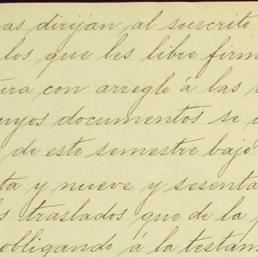 as dirijan al suscrito
los que les libre firm
ura con arreglo á las
uyos documentos se
de este semestre bajo
ta y nueve y sesenta
s traslados que de la
obligando á la testam